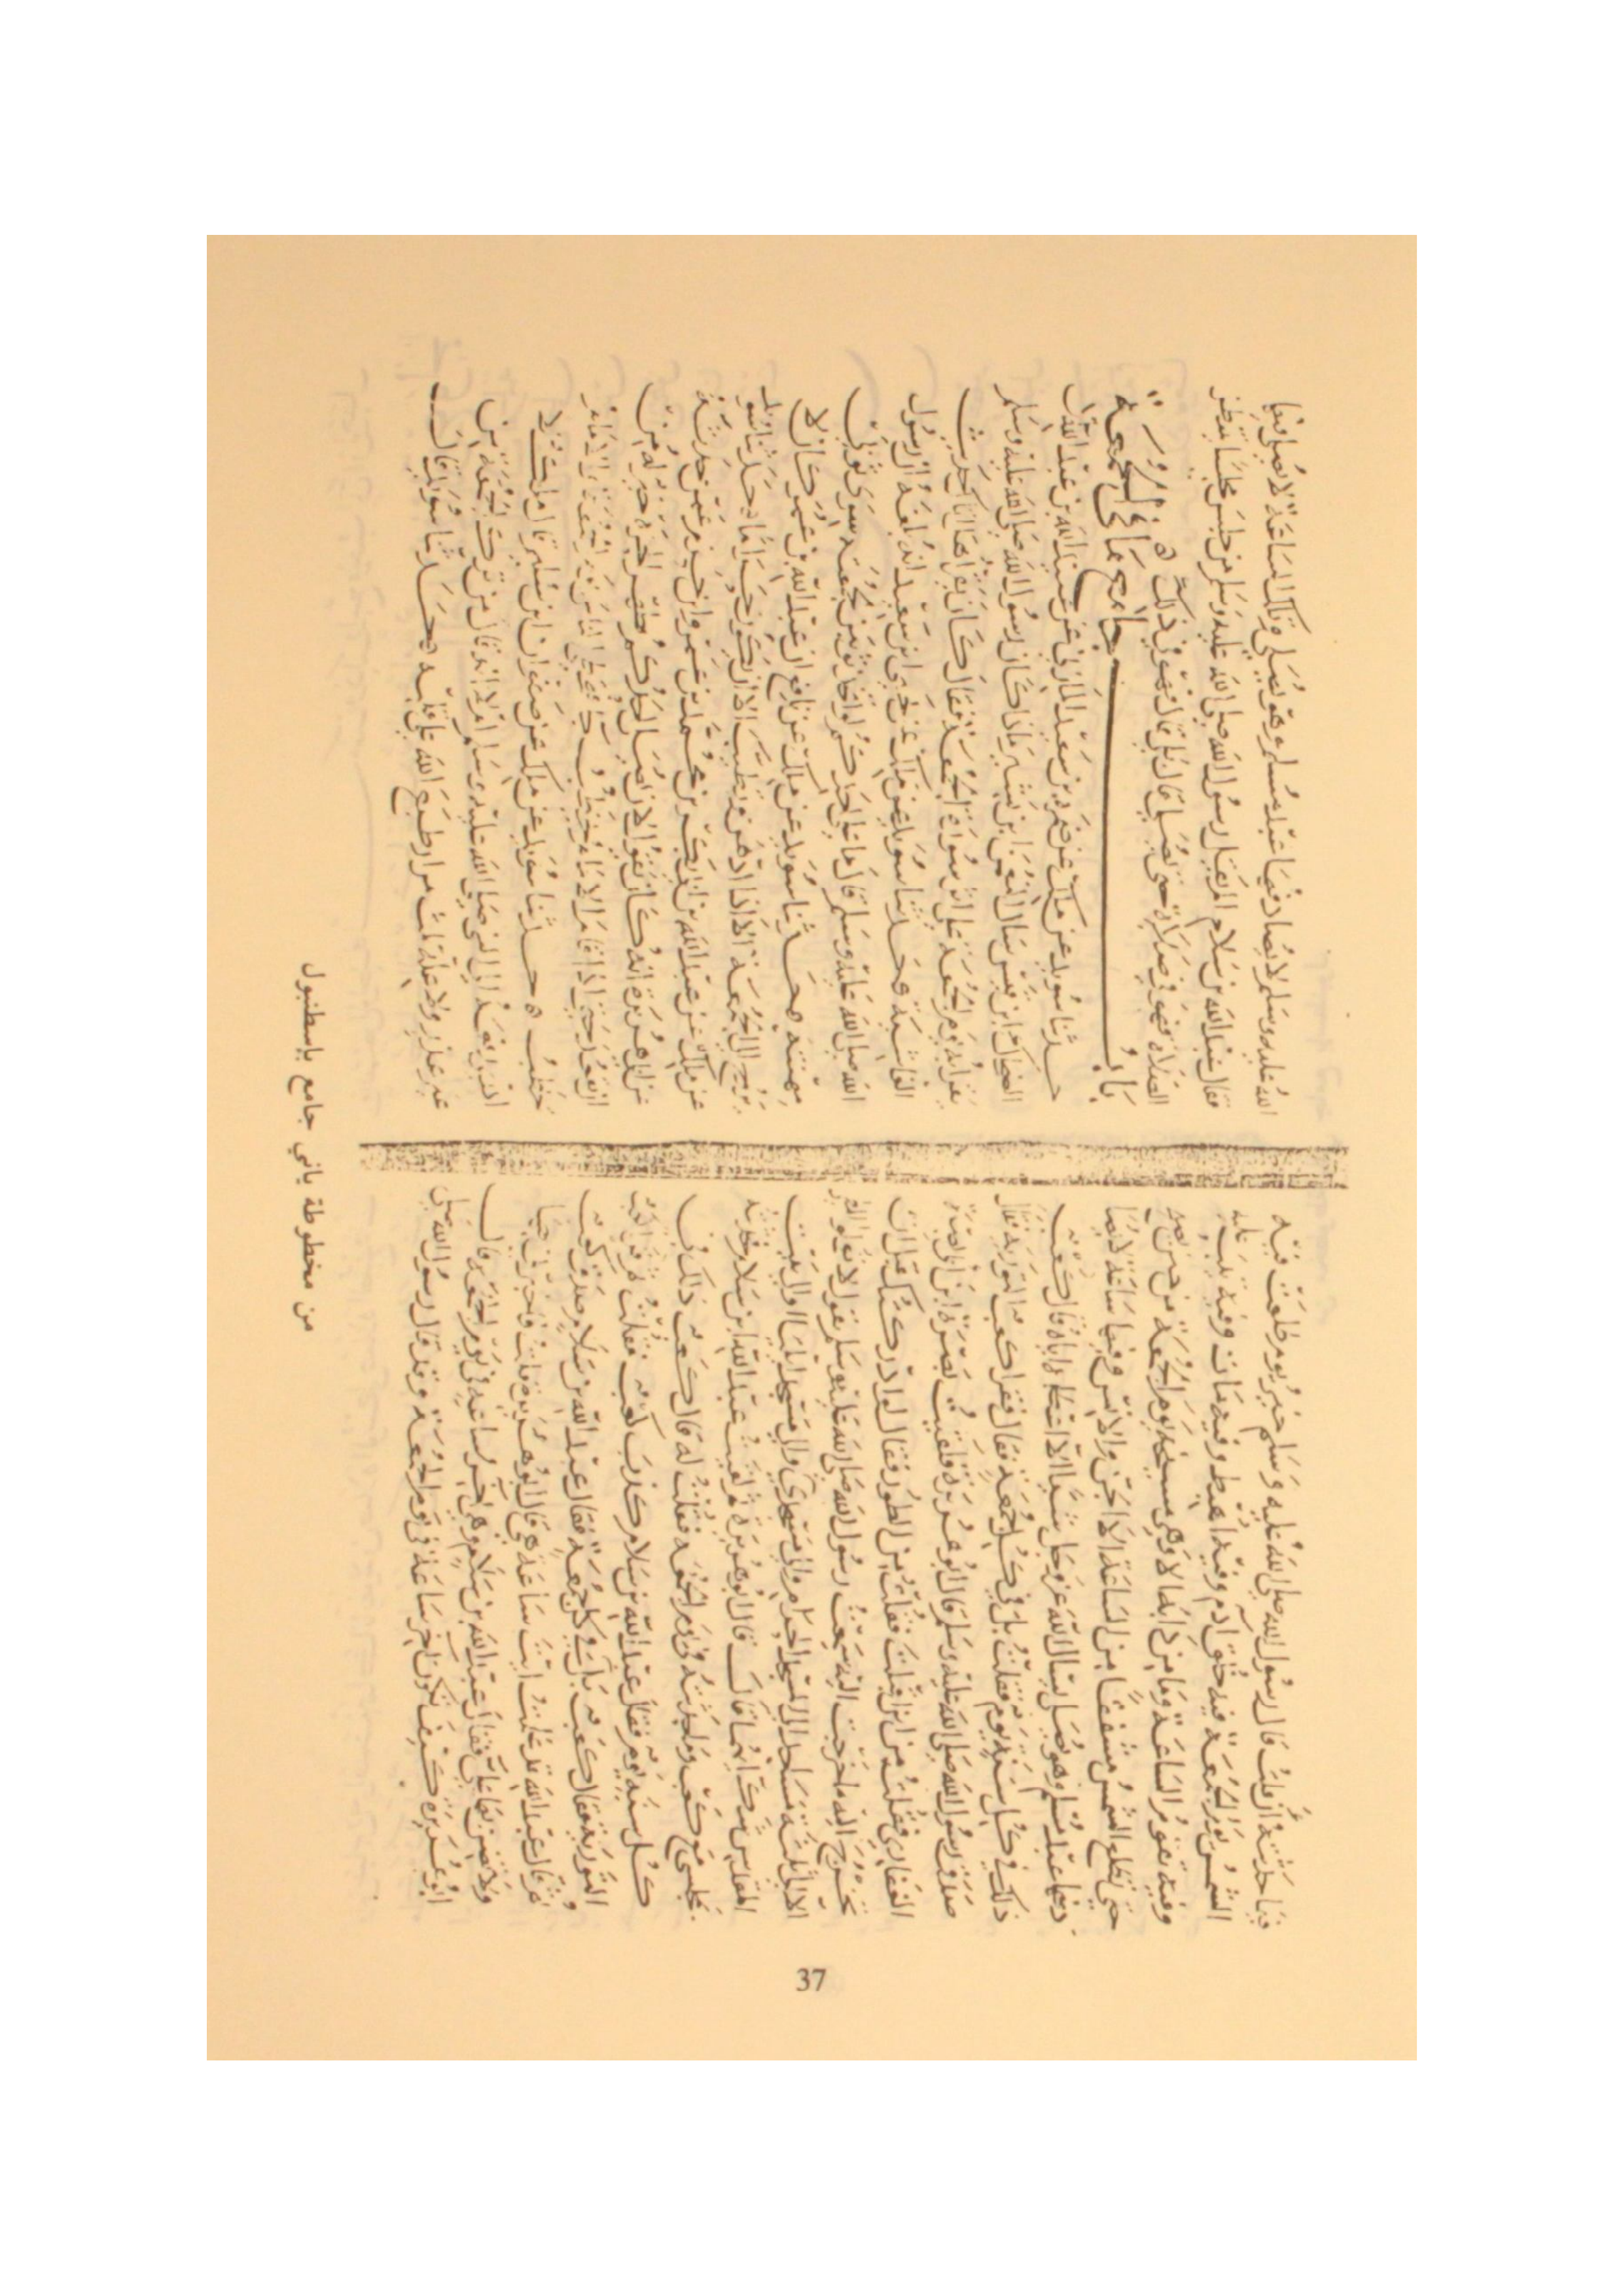 فيما حدثته أن قلت قال رسول الله صلى الله عليه وسلم خير يوم طلعت فيه
الشمس يوم الجمعة فيه خلق آدم وفيه اهبط وفيه مات وفيه تيب عليه
وفيه تقوم الساعة وما من دابة الا وهي مسيخة يوم الجمعة من حين تصبح
حتى تطلع الشمس شفقا من الساعة الا الجن والانس وفيها ساعة لا يصا
دفها عبد مسلم وهو يصلي يسال الله عز وجل شيا الا اعطاه اياه قال كعب
ذلك في كل سنة يوم فقلت بل في كل جمعة فقال فقرا كعب التورية فقال
صدق رسول الله صلى الله عليه وسلم قال ابو هريرة فلقيت بصرة ابن ابي بصرة
الغفاري فقال من اين اقبلت فقلت من الطور فقال لو ادركتك قبل ان
تخرج اليه ما خرجت اليه سمعت رسول الله صلى الله عليه وسلم يقول لا
الا الى ثلثة مساجد الى المسجد الحرام والى مسجدي والى مسجد ايليا او الى بيت
المقدس شك ايهما قال قال ابو هريرة ثم لقيت عبد الله ابن سلام فحدثته
بمجلسي مع كعب وما حدثته في يوم الجمعة فقلت له قال كعب ذلك في
كل سنة يوم فقال عبد الله بن سلام كذب كعب فقلت ثم قرا
التورية فقال كعب بل في كل جمعة فقال عبد الله بن سلام صدق كعب
ثم قال عبد الله قد علمت ايت ساعة هي قال ابو هريرة قلت فاخبرني بها
ولا تضن بها علي فقال عبد الله بن سلام هي آخر ساعة في يوم الجمعة قال
ابو هريرة كيف تكون اخر ساعة في يوم الجمعة وقد قال رسول الله صلى
الله عليه وسلم لا يصادفها عبد مسلم وهو يصلي وتلك الساعة لا يصلى فيها
فقال عبد الله بن سلام الم يقل رسول الله صلى الله عليه وسلم من جلس مجلسا ينتظر
الصلاة فهو في صلاة حتى يصلي قال بلى قال فهو في ذلك
باب جامع ما في الجمعة
حدثنا سويد عن ملك عن ضمرة بن سعيد المازني عن عبيد الله بن عبد الله ان
الضحاك ابن قيس سال النعمن ابن بشير ماذا كان رسول الله صلى الله عليه وسلم
يقرا به يوم الجمعة على اثر سورة الجمعة فقال كان يقرا هل اتاك حديث
الغاشية حدثنا سويد عن ملك عن يحيى ابن سعيد انه بلغه ان رسول
الله صلى الله عليه وسلم قال ما على احدكم لو اتخذ ثوبين لجمعته سوى ثوبي
مهنته حدثنا سويد عن ملك عن نافع ان عبد الله بن عمر كان لا
يروح الى الجمعة الا اذا ادهن وتطيب الا ان يكون حراما حدثنا سويد
عن ملك عن عبد الله بن ابي بكر بن محمد بن عمرو ابن حزم عمن حدثه
عن ابي هريرة انه كان يقول لان يصلي احدكم بظهر الحرة خير له من
ان يقعد حتى اذا قام الامام يخطب جا يتخطى الناس يوم الجمعة والامام
يخطب حدثنا سويد عن ملك عن صفوان ابن سليم قال ملك لا
ادري اعن النبي صلى الله عليه وسلم ام لا انه قال من ترك الجمعة من
غير عذر ولا علة ثلث مرار طبع الله على قلبه حدثنا سويد قال
من مخطوطة ياني جامع بإسطنبول
37